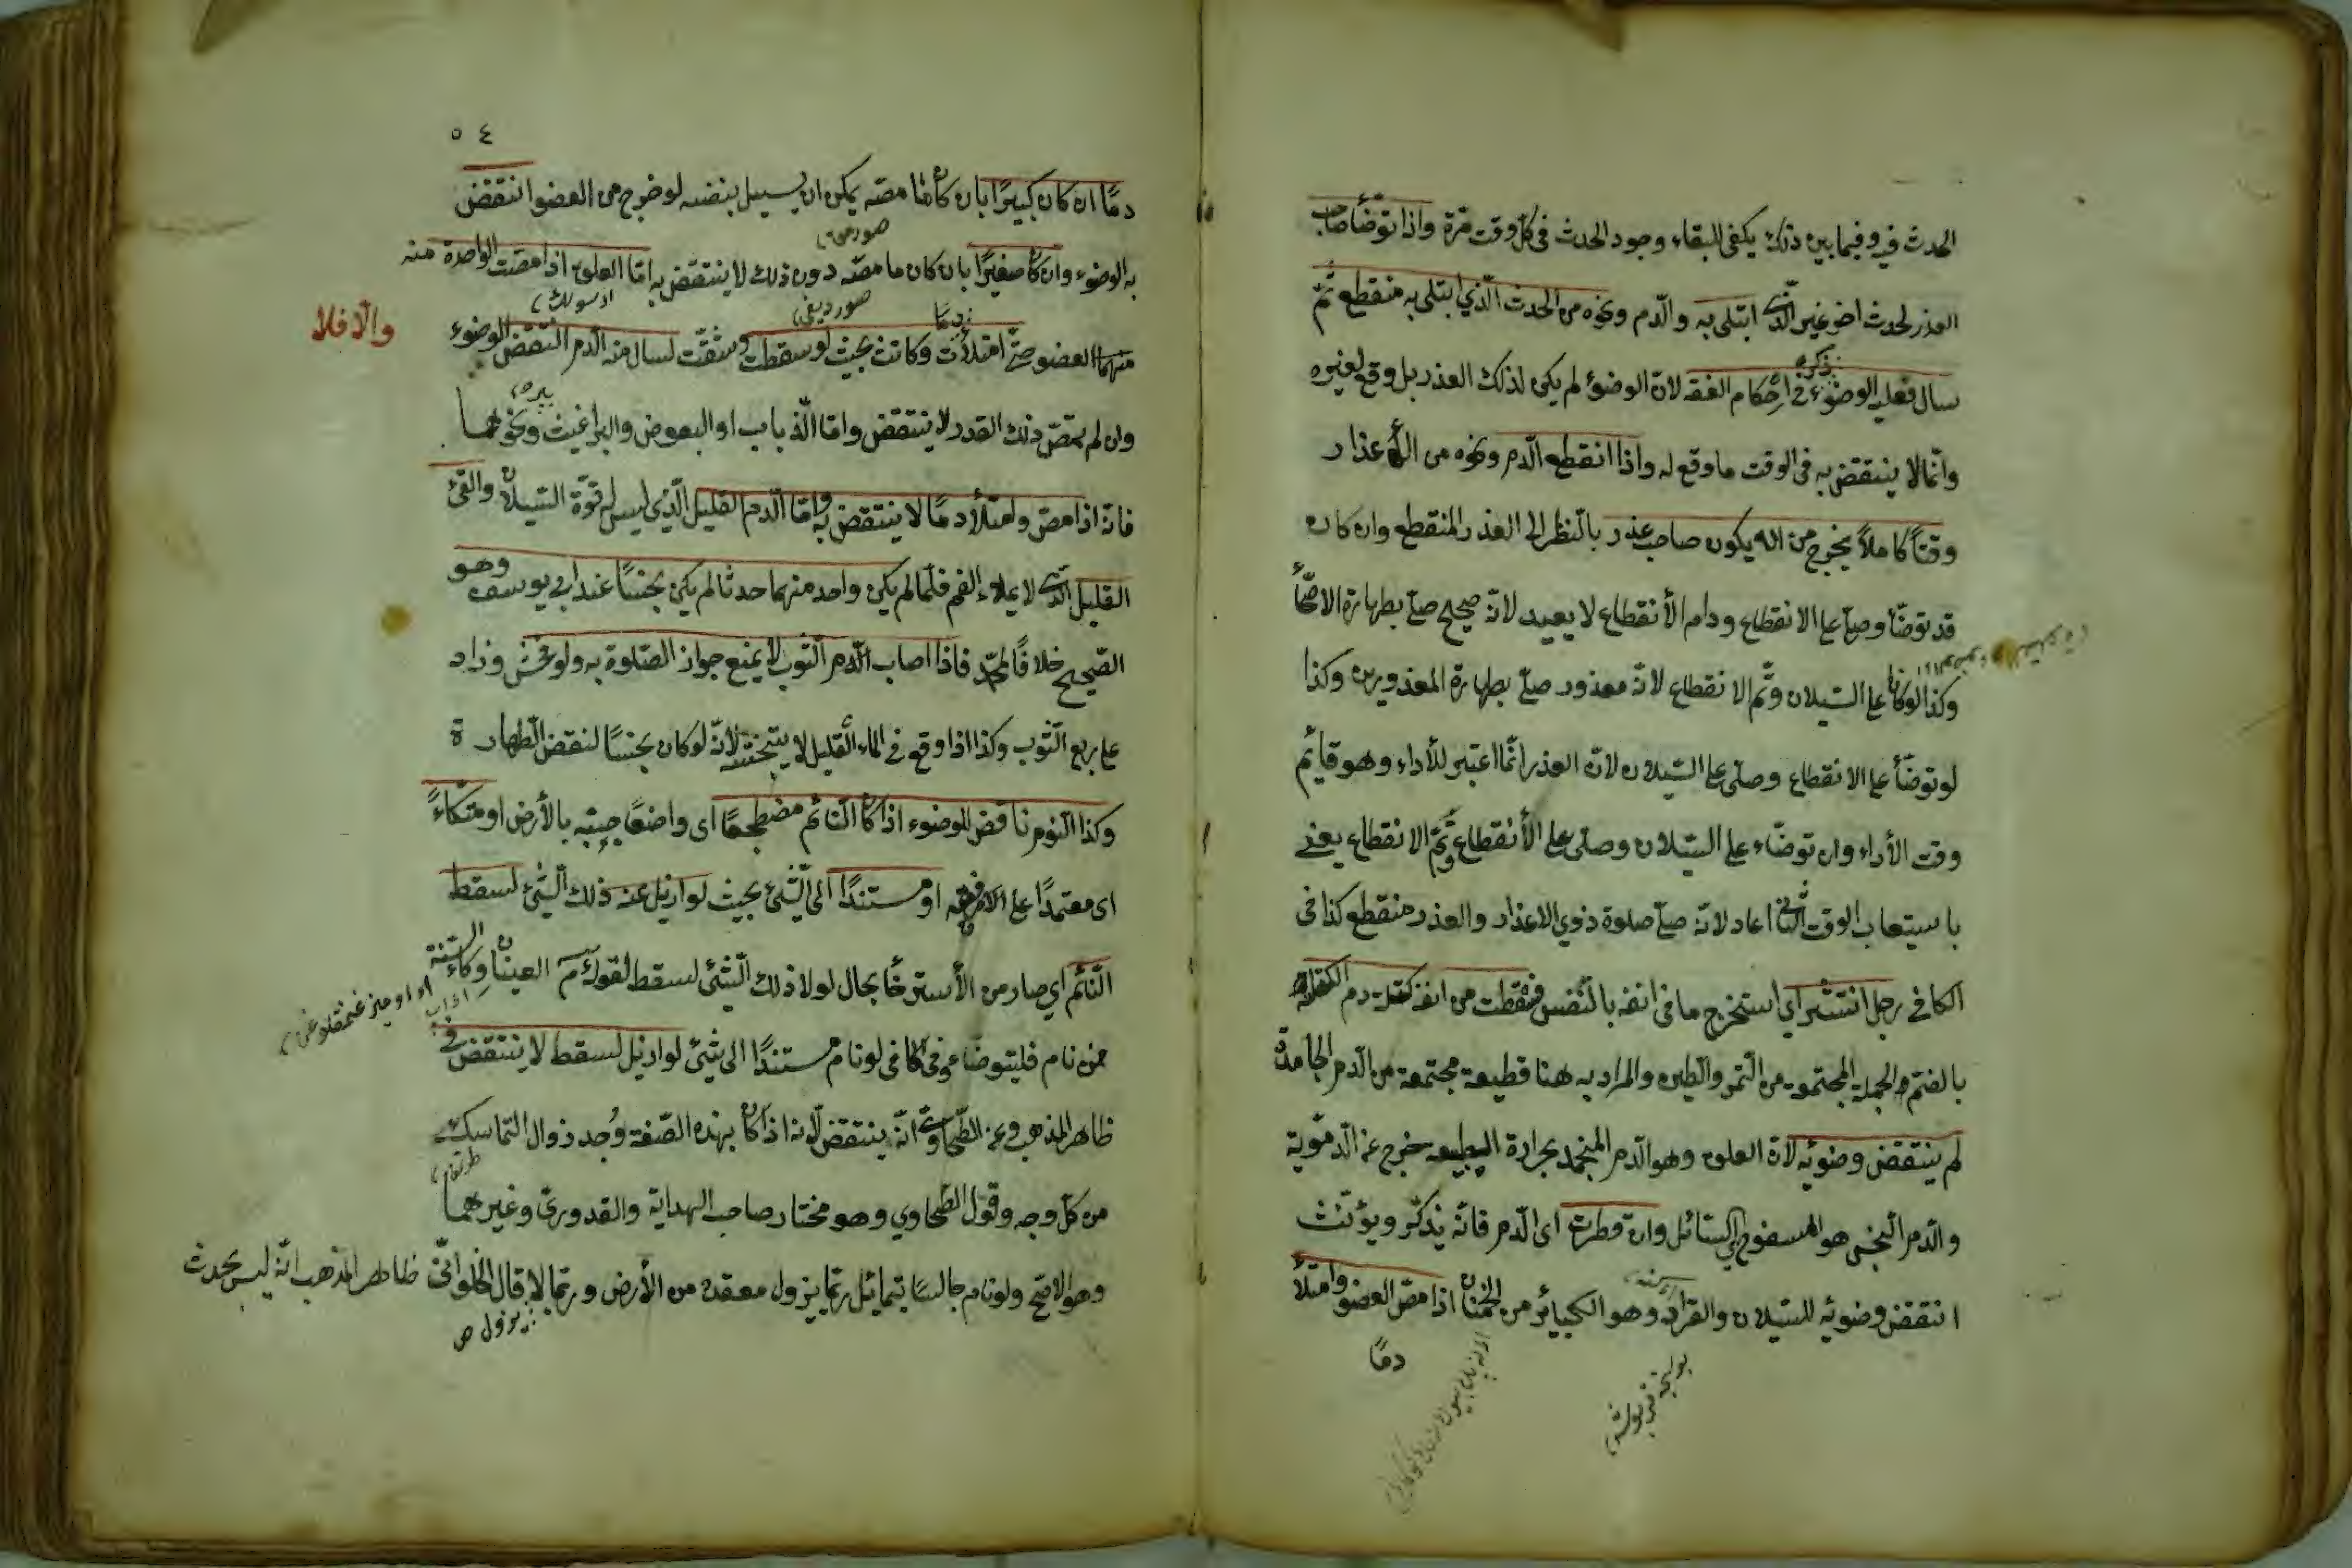 الحدث فيه وفيما بين ذلك يكفى للبقاء وجود الحدث فى كل وقت مرّة واذا توضّأ صاحب
العذر لحدث اخر غير الّذى ابتلى به والّدم ونحوه من الحدث الّذي ابتلى به منقطع ثمّ
سال فعليه الوضوء ذكره فى احكام الفقه لانّ الوضوء لم يكن لذلك العذر بل وقع لغيره
وانّما لا ينتقض به فى الوقت ما وقع له واذا انقطع الّدم ونحوه من الأعذار
وقتاً كاملاً يخرج من انه يكون صاحب عذر بالنّظر الى العذر المنقطع وان كان
قد توضّأ وصلّى على الانقطاع ودام الأنقطاع لا يعيد لانّه صحيح صلّى بطهارة الاصحّاء
وكذا لو كانا على السّيلان وتمّ الانقطاع لانّه معذور صلّى بطهارة المعذورين وكذا
لو توضّأ على الانقطاع وصلّى على السّيلان لانّ العذر انّما اعتبر للأداء وهو قائم
وقت الأداء وان توضّاء على السّيلان وصلّى على الأنقطاع وتمّ الانقطاع يعنى
باستيعاب الوقت الثّانى اعاد لانّه صلّى صلوة ذوي الاعذار والعذر منقطع كذا فى
الكافى رجل انتثر اي استخرج ما فى انفه بالنّفس فسقطت من انفه كتلة دم الكتلة
بالضّم هو الجملة المجتمعة من التّمر والطّين والمراد به هنا قطيعة مجتمعة من الّدم الجامدة
لم ينتقض وضوئه لانّ العلق وهو الّدم المنجمد بحرارة الطبيعه خرج عن الّدمويّة
والّدم النّجس هو المسفوح اي السّائل وان قطرت اى الّدم فانّه يذكّر ويؤنّث
انتقض وضوئه للسّيلان والقراد وهو الكبائر من الحمنان اذا مصّ العضو وامتلأ
دمًا
٥٤
دمًا ان كان كبيرًا بان كان ما مصّه يمكن ان يسيل بنفسه لو خرج من العضو انتقض
به الوضوء وان كان صغيرًا بان كان ما مصّه دون ذلك لا ينتقض به امّا العلق اذا مصّت الواحدة منه
منهما العضو حتّى امتلأت دمًا وكانت بحيث لو سقطت وشقّت لسال منه الّدم انتقض الوضوء
والّا فلا
وان لم تمصّ ذلك القدر لا ينتقض وامّا الّذباب او البعوض والبراغيث ونحوهما
فانّه اذا مصّ وامتلأ دمًا لا ينتقض به وامّا الّدم القليل الّذى ليس له قوّة السّيلان والقئ
القليل الّذى لا يملاء الفم فلمّا لم يكن واحد منهما حدثا لم يكن نجسًا عند ابى يوسف وهو
الصّحيح خلافًا لمحمّد فاذا اصاب الّدم الثّوب لا يمنع جواز الصّلوة به ولو فحش وزاد
على ربع الثّوب وكذا اذا وقع فى الماء القليل لا يتنجّس لأنّه لو كان نجسًا لنقض الطّهارة
وكذا النّوم ناقض للوضوء اذا كان النّائم مضطجعًا اى واضعًا جنبه بالأرض او متّكاءً
اى معتمدًا على مرفقه او مستندًا الى الشّئ بحيث لو ازيل عنه ذلك الشّئ لسقط
النّائم اي صار من الأسترخأ بحال لولا ذلك الشّئ لسقط لقوله عم العينان وكاء السّته
فمن نام فليتوضّاء وفى الكافى لو نام مستندًا الى شئ لو ازيل لسقط لا ينتقض فى
ظاهر المذهب وعن الطّحاوى انّه ينتقض لانّه اذا كان بهذه الصّفة وُجد زوال التّماسك
من كلّ وجه وقول الطّحاوي وهو مختار صاحب الهداية والقدورىّ وغيرهما
وهو الاصحّ ولو نام جالسًا يتمائل ربّما يزول مقعده من الأرض وربّما لا قال الحلوانىّ ظاهر المذهب انّه ليس بحدث
يزول ص